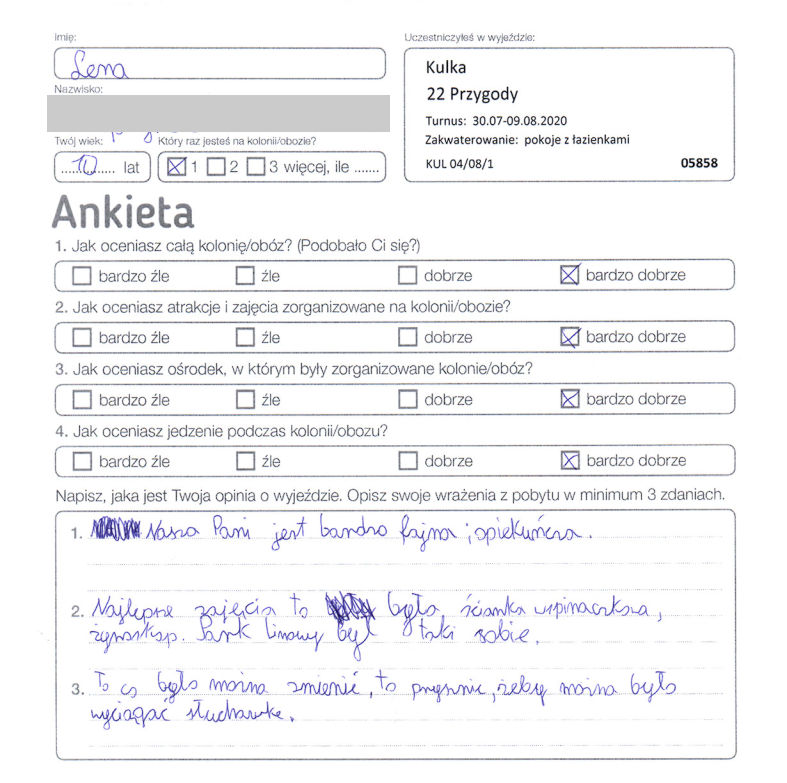 Imię:
Lena
Nazwisko:
Twój wiek: Który raz jesteś na kolonii/obozie?
10 lat 1 2 3 więcej, ile .......
Uczestniczyłeś w wyjeździe:
Kulka
22 Przygody
Turnus: 30.07-09.08.2020
Zakwaterowanie: pokoje z łazienkami
KUL 04/08/1 05858
Ankieta
1. Jak oceniasz całą kolonię/obóz? (Podobało Ci się?)
bardzo źle źle dobrze bardzo dobrze
2. Jak oceniasz atrakcje i zajęcia zorganizowane na kolonii/obozie?
bardzo źle źle dobrze bardzo dobrze
3. Jak oceniasz ośrodek, w którym były zorganizowane kolonie/obóz?
bardzo źle źle dobrze bardzo dobrze
4. Jak oceniasz jedzenie podczas kolonii/obozu?
bardzo źle źle dobrze bardzo dobrze
Napisz, jaka jest Twoja opinia o wyjeździe. Opisz swoje wrażenia z pobytu w minimum 3 zdaniach.
1. Nasza Pani jest bardzo fajna i opiekuńcza.
2. Najlepsze zajęcia to była ścianka wspinaczkowa,
Park linowy był taki sobie.
3. To co było można zmienić, to prysznic, żeby można było
wyciągać słuchawke.